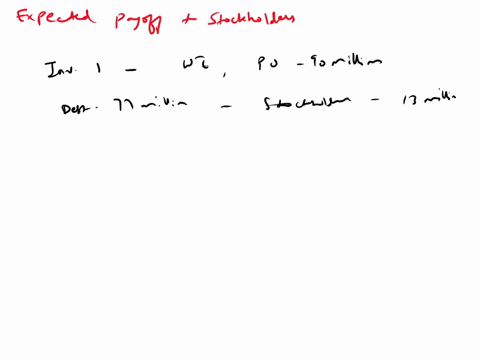 Expected Payoff to Stockholders
Inv. 1 - , PO - 90 million
Debt. 77 million - Stockholder - 13 milli